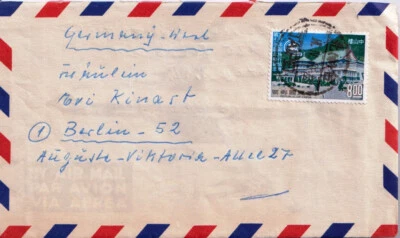 Germany-West
Fräulein
Kinast
① Berlin-52
Auguste-Viktoria-Allee 27
BY AIR MAIL
PAR AVION
VIA AEREA
樓山中
8.00